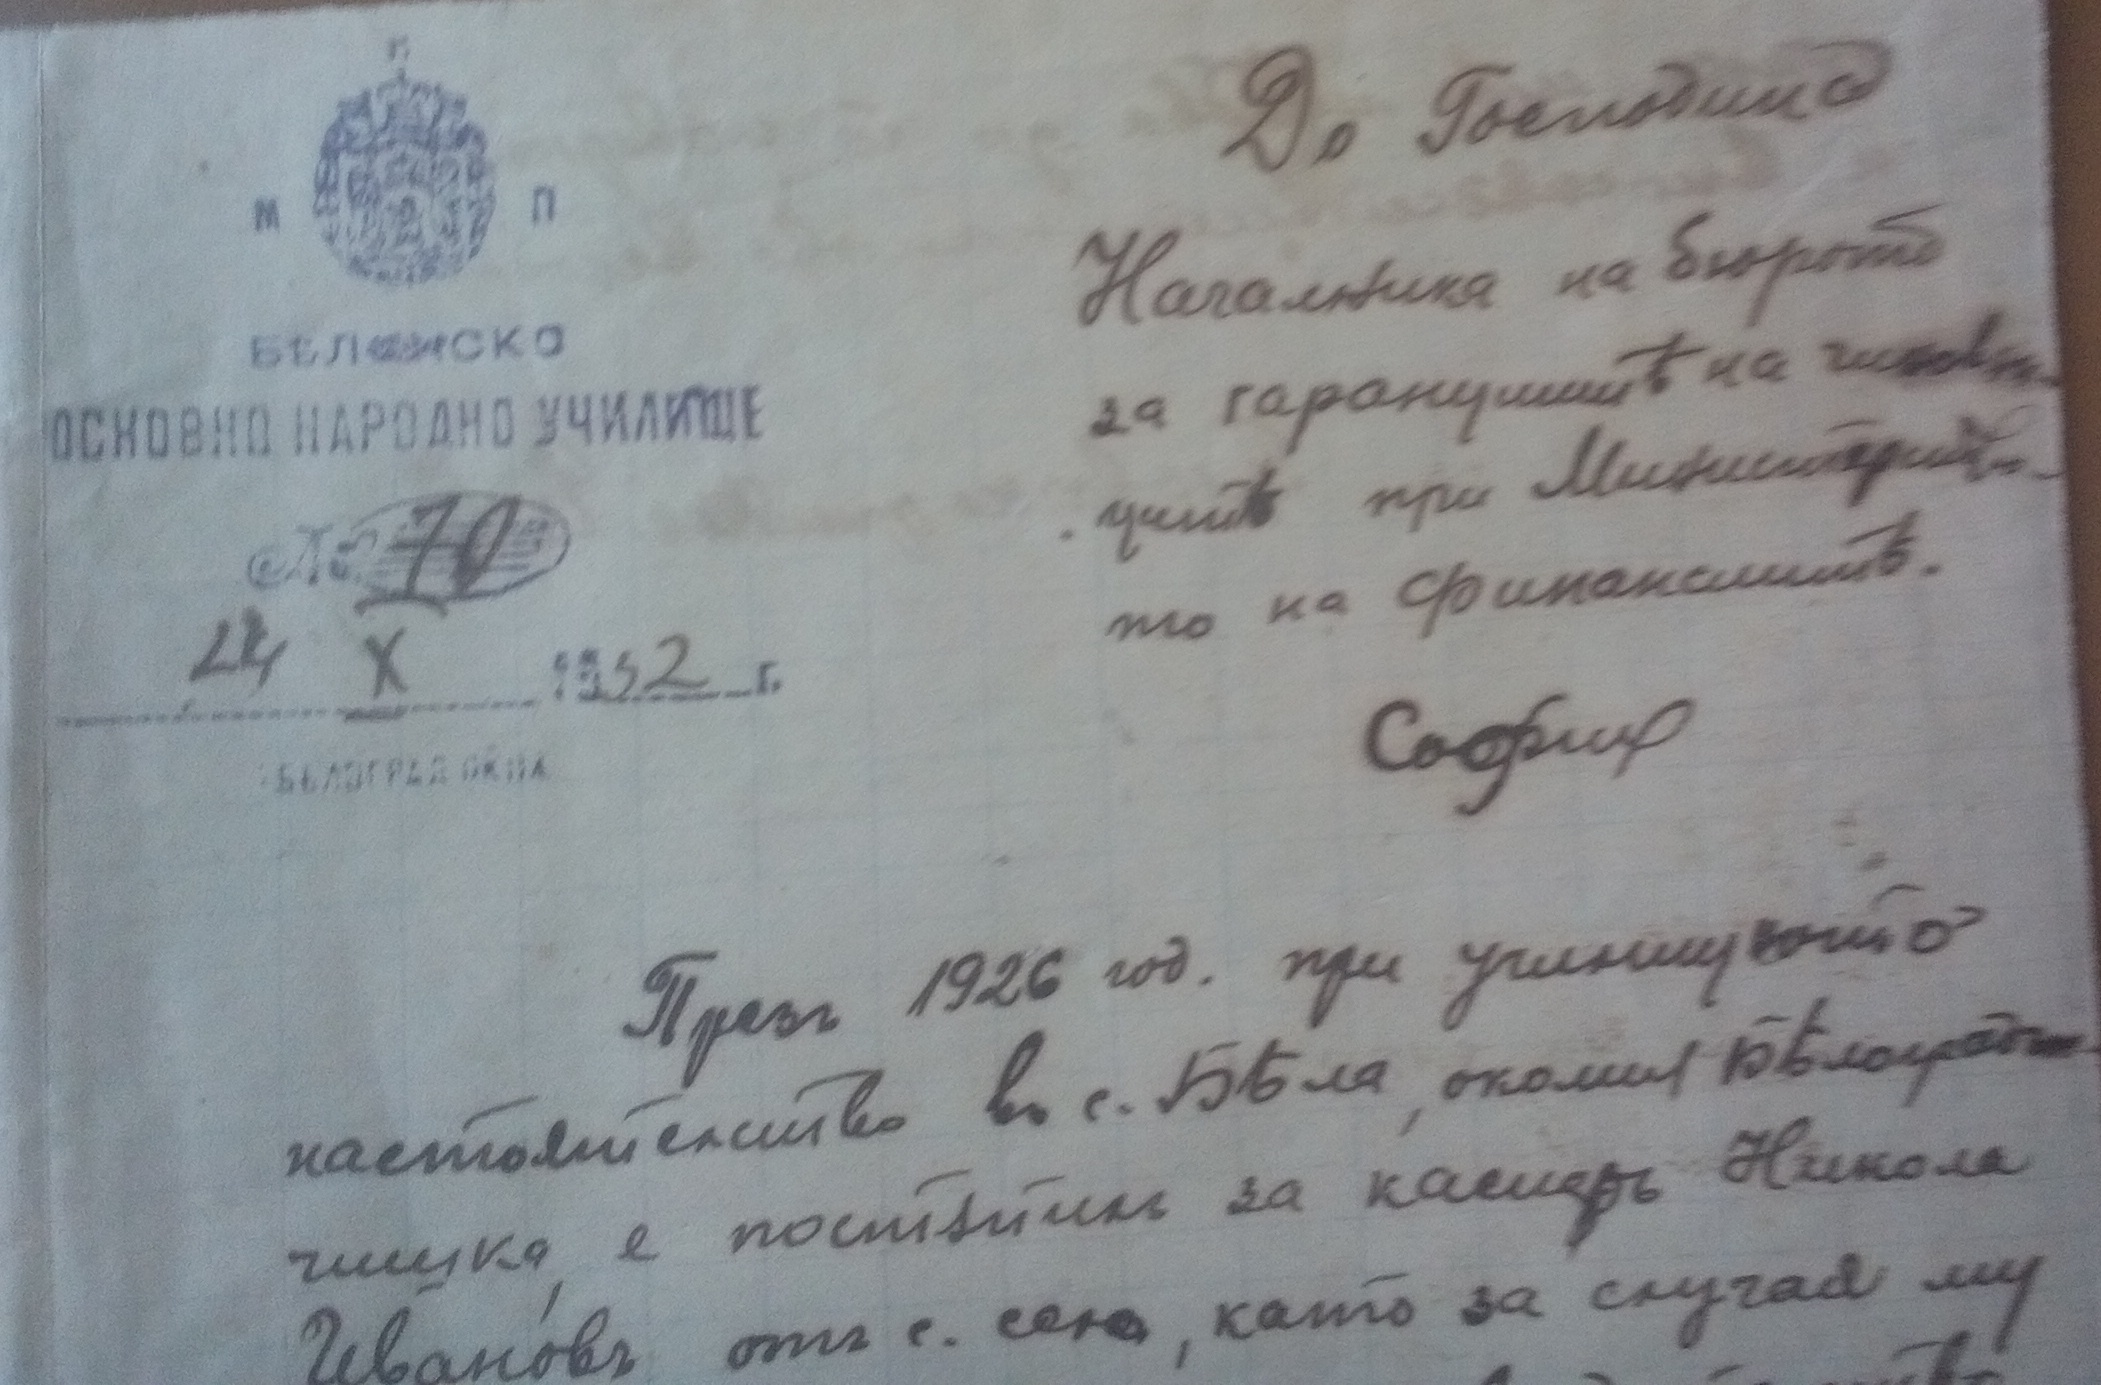 М П
БЕЛ СКО
ОСНОВНО НАРОДНО УЧИЛИЩЕ
№ 70
24 X 1932 г.
БЕЛОГРАД ОКИЯ
До Господина
Началника на бюрото
за гаранциитѣ на чиновни-
цитѣ при Министерство-
то на Финанситѣ.
София
Презъ 1926 год. при училищното
настоятелство въ с. Бѣла, околия Бѣлоградж-
чишка, е постъпилъ за касиеръ Никола
Ивановъ отъ с. село, като за случая му